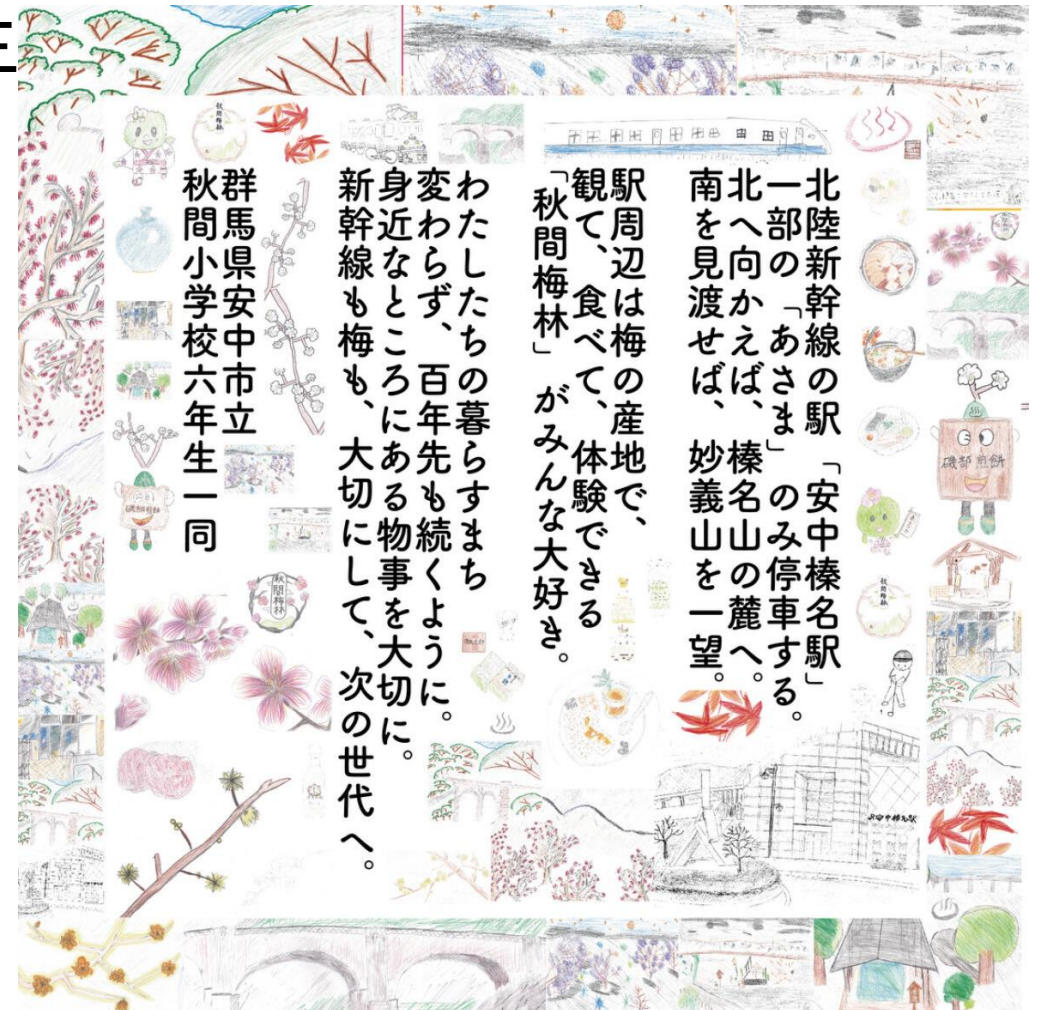 北陸新幹線の駅「安中榛名駅」
一部の「あさま」のみ停車する。
北へ向かえば、榛名山の麓へ。
南を見渡せば、妙義山を一望。
駅周辺は梅の産地で、
観て、食べて、体験できる
「秋間梅林」がみんな大好き。
わたしたちの暮らすまち
変わらず、百年先も続くように。
身近なところにある物事を大切に。
新幹線も梅も、大切にして、次の世代へ。
群馬県安中市立
秋間小学校六年生一同
秋間梅林
秋間梅林
秋間梅林
磯部煎餅
JR安中榛名駅